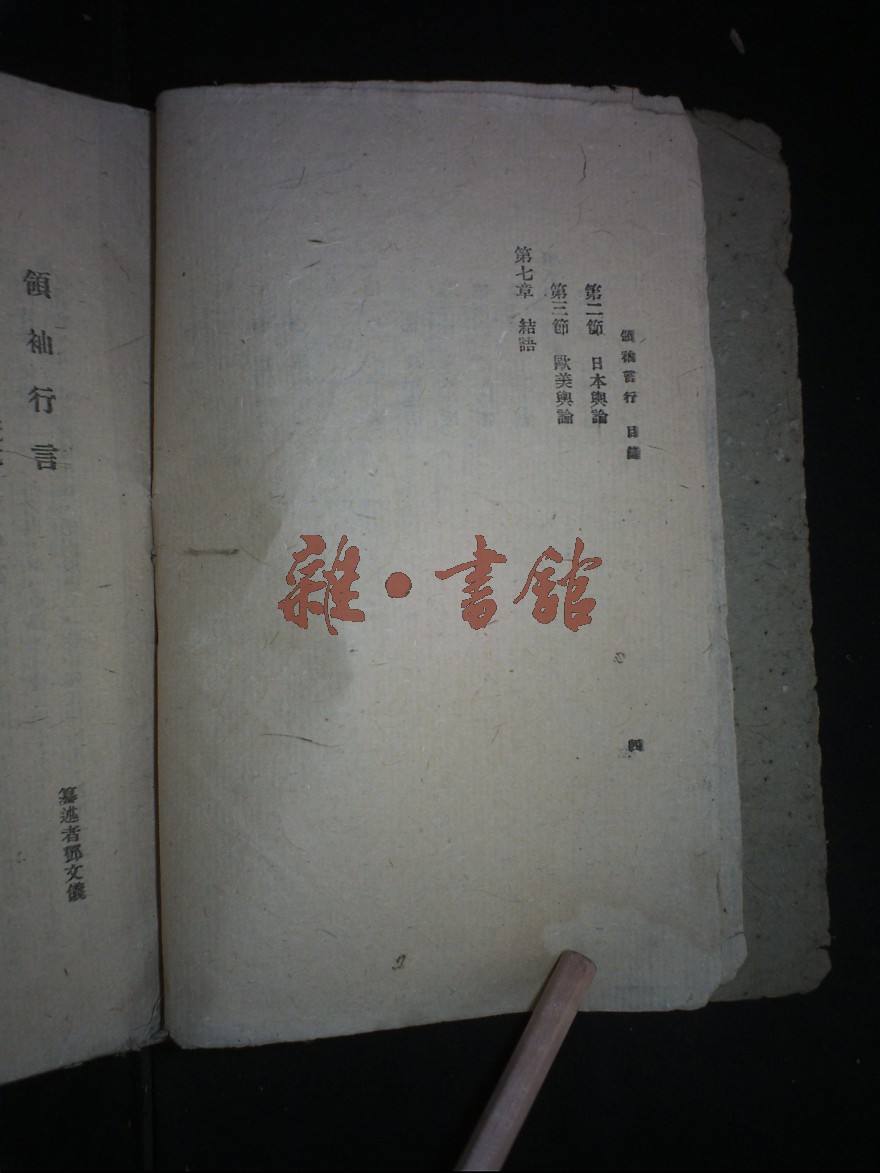 領袖言行 目錄
第二節 日本輿論
第三節 歐美輿論
第七章 結語
四
領袖行言
纂述者鄧文儀
雜·書館